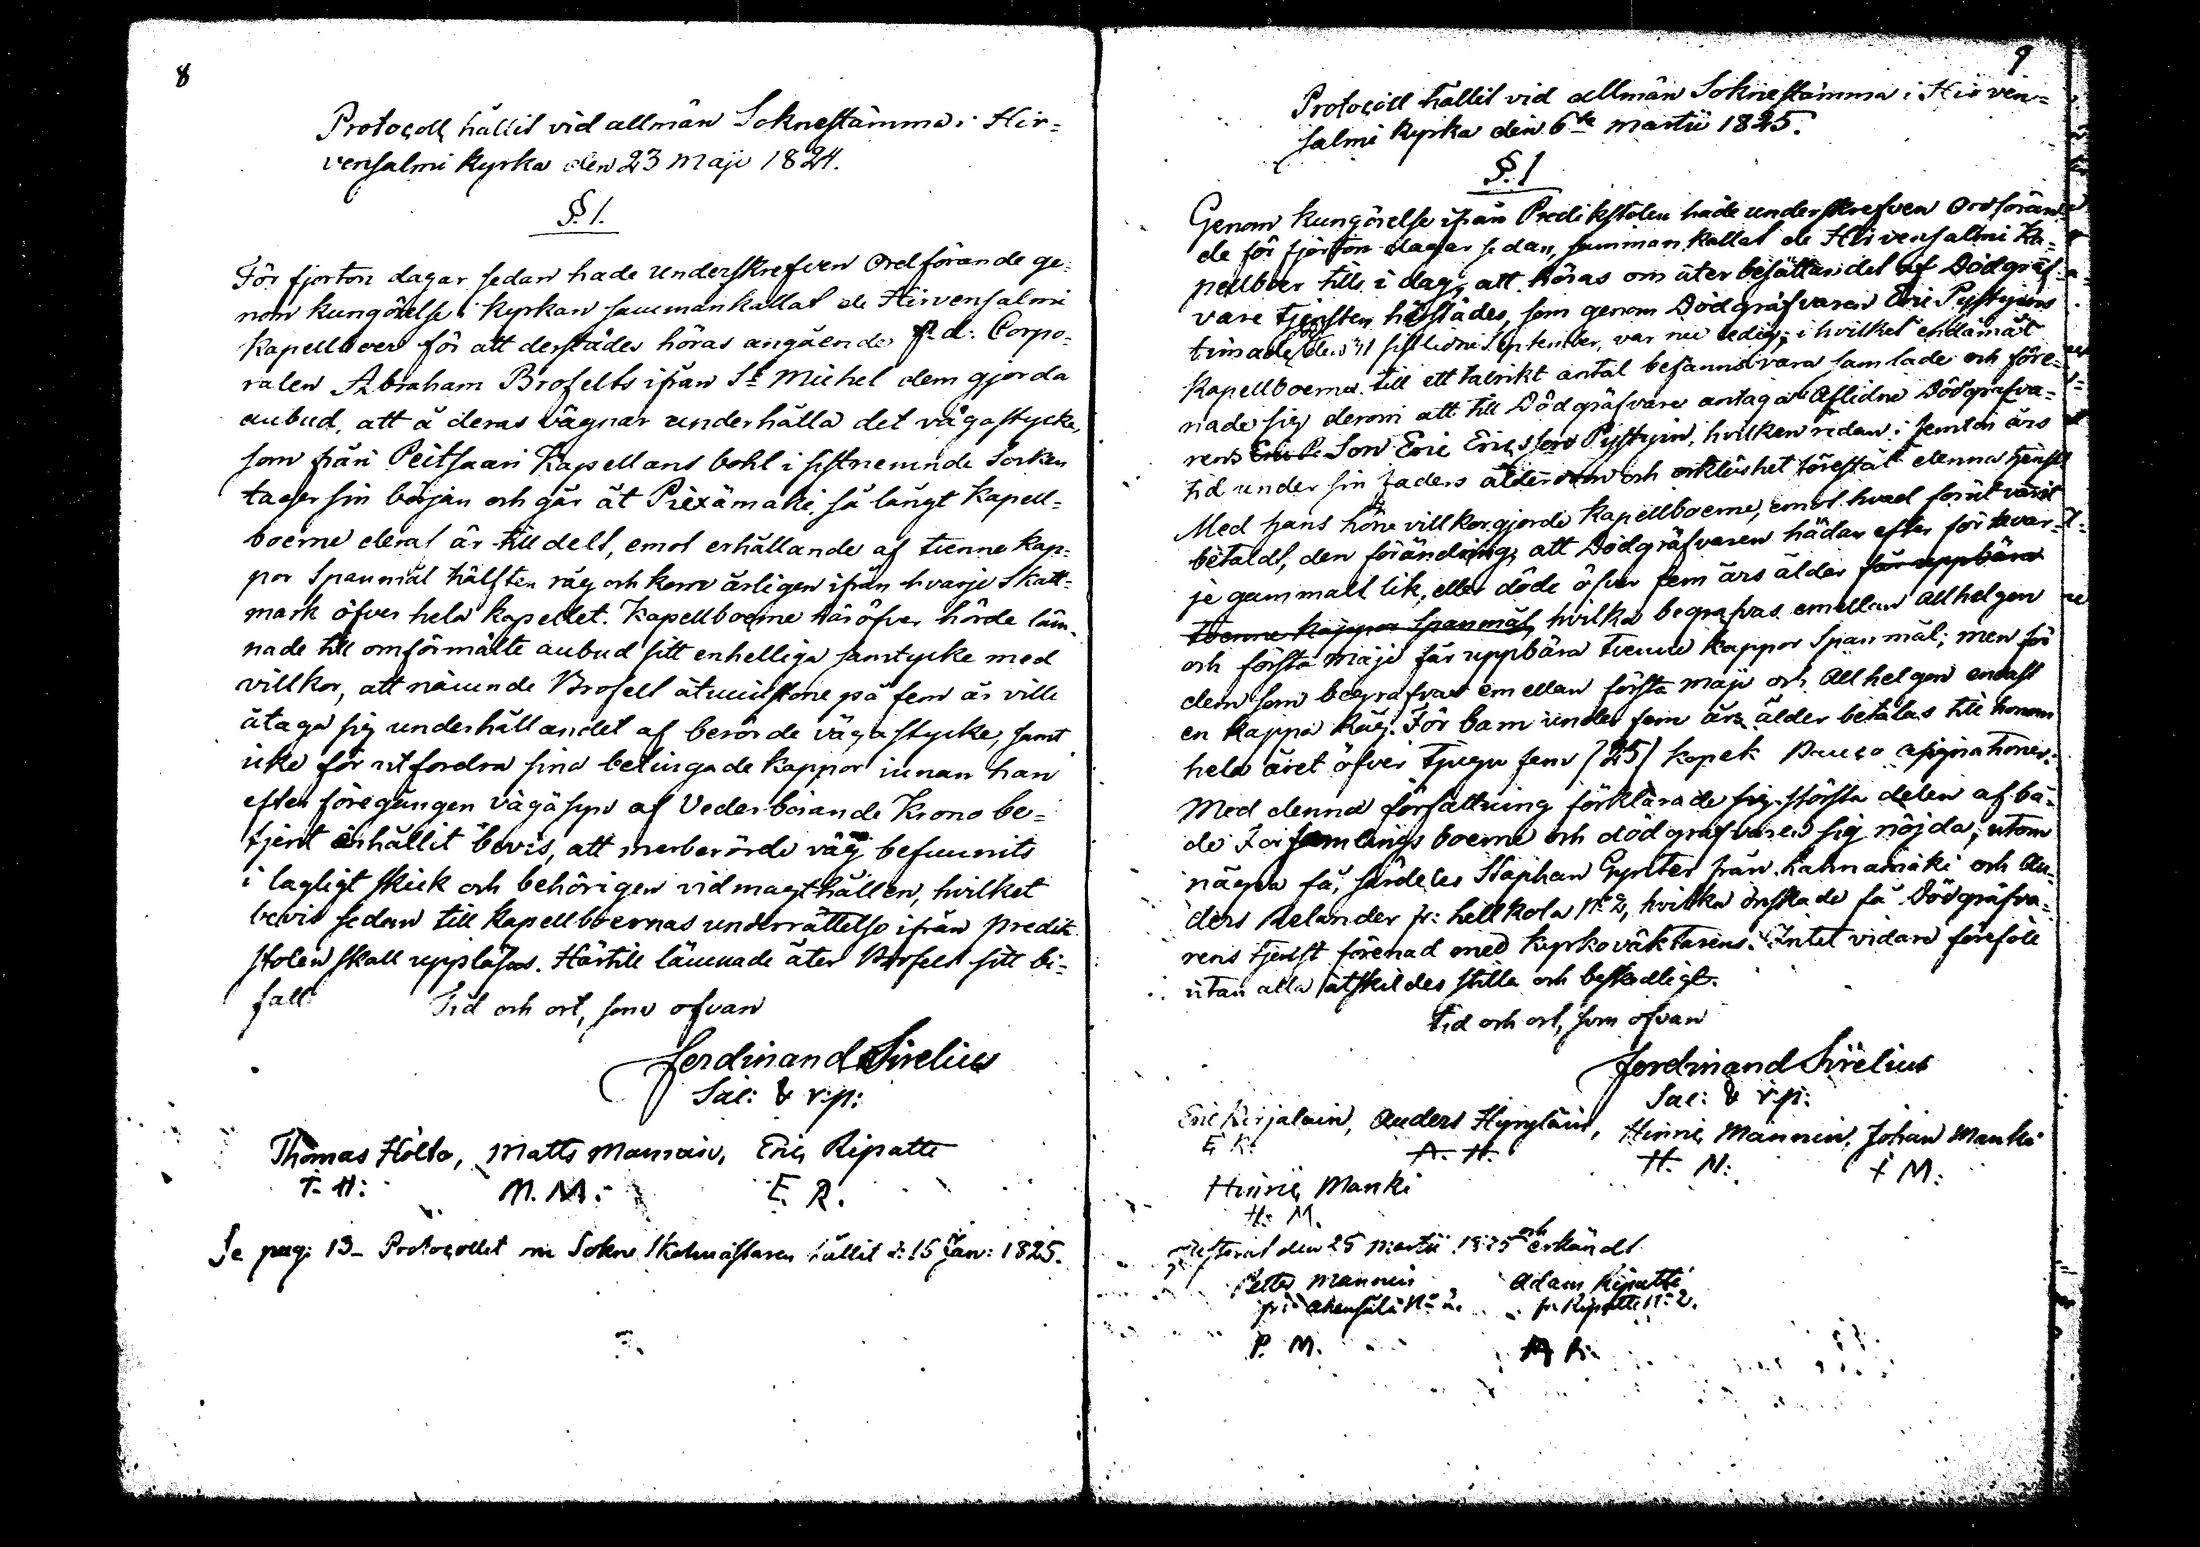 8
Protocoll hållit vid allmän Soknestämma i Hir-
vensalmi Kyrka den 23 Maji 1824.
§. 1.
För fjorton dagar sedan hade underskrefven Ordförande ge-
nom kungörelse i Kyrkan sammankallat de Hirvensalmi
Kapellboer för att derstädes höras angående f. d. Corpo-
ralen Abraham Brofelts ifrån St Michel dem gjorda
anbud, att å deras vägnar underhålla det vägastycke,
som från Peitsaari Kapellans bohl i sistnemnde Socken
tager sin början och går åt Piexämäki, så långt Kapell-
boerne deraf är tilldelt, emot erhållande af tvenne kap-
por Spanmål hälften råg och korn årligen ifrån hvarje Skatt-
mark öfver hela Kapellet. Kapellboerne häröfver hörde läm-
nade till omförmälte anbud sitt enhelliga samtycke med
villkor, att nämnde Brofelt åtminstone på fem år ville
åtaga sig underhållandet af berörde vägastycke, samt
icke för utfordra sina betingade Kappor innan han
efter föregången vägasyn af Vederbörande Krono be-
tjent erhållit bevis, att merberörde väg befunnits
i lagligt skick och behörigen vid magthållen, hvilket
bevis sedan till Kapellboernas underrättelse ifrån Predik
stolen skall uppläsas. Härtill lämnade åter Brofelt sitt bi-
fall Tid och ort, som ofvan
Ferdinand Sirelius
Sac: & v.p:
Thomas Hölta, Matts Mannin, Eric Ripatte
T. H: M. M: E. R.
Se pag: 13_ Protocollet om Sokne Skolmästaren hållit d: 16 Jan: 1825.
9
Protocoll hållit vid allmän Soknestämma i Hirven-
salmi Kyrka den 6te Martii 1825.
§. 1
Genom kungörelse ifrån Predikstolen hade underskrefven Ordföran-
de för fjorton dagar sedan, samman kallat de Hirvensalmi Ka-
pellboer till i dag, att höras om åter besättandet af Dödgräf-
vare tjensten härstädes, som genom Dödgräfvaren Eric Pystyins
timade död den 11 sistledne September, var nu ledig; i hvilket ändamåt
Kapellboerna till ett talrikt antal befanns vara samlade och före-
nade sig derom att till Dödgräfvare antaga Aflidne Dödgräfva-
rens Eric P. Son Eric Ericsson Pystyin, hvilken redan i femton års
tid under sin Faders ålderdom och orkeslöshet förestått denna tjenst
Med hans löne villkor gjorde Kapellboerne, emot hvad förut varit
betaldt, den förändring, att Dödgräfvaren hädan efter för hvar-
je gammalt lik, eller döde öfver fem års ålder får uppbära
tvenne kappor Spanmål, hvilka begrafvas emellan Allhelgen
och första Maji får uppbära tvenne kappor Spanmål; men för
dem som begrafvas emellan första Maji och Allhelgen endast
en kappa Råg. För barn under fem års ålder betalas till honom
hela året öfver tjugu fem (25) kopek Banco assignationer.
Med denna författning förklarade sig största delen af bå-
de Församlings boerne och dödgräfvaren sig nöjda; utom
några få, särdeles Staphan Gynter från Hahnamäki och An-
ders Relander fr: Hellkola No 2, hvilka önskade få Dödgräfva-
rens tjenst förenad med Kyrkoväktarens. Intet vidare föreföll
utan alla åtskildes stilla och beskedligt.
Tid och ort, som ofvan
Ferdinand Sirelius
Sac: & v.p:
Eric Kirjalain, Anders Hyryläin, Hinric Mannin, Johan Manki
E. K. A. H. H. M: I M:
Hinric Manki
H. M.
den 25 Martii 1825 och erkändt
Petter Mannin Adam Ripatti
fr. Ripatti No 2.
P. M. A R.